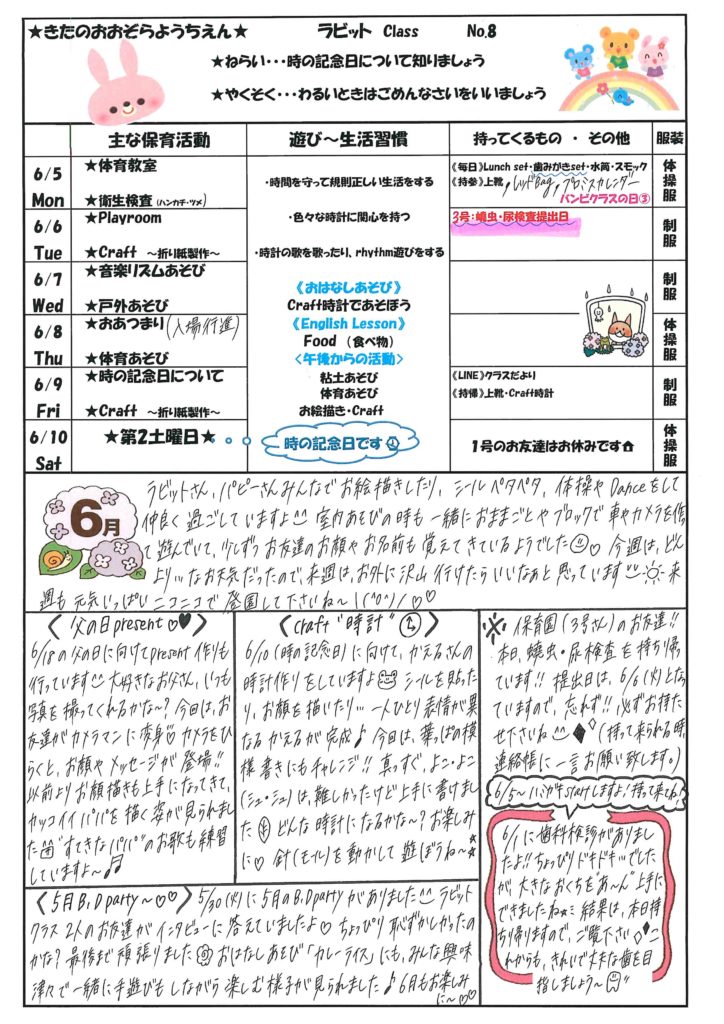 ★きたのおおぞらようちえん★ ラビット Class No.8
★ねらい・・・時の記念日について知りましょう
★やくそく・・・わるいときはごめんなさいをいいましょう
主な保育活動 遊び～生活習慣 持ってくるもの ・ その他 服装
6/5 Mon
★体育教室
★衛生検査（ハンカチ・ツメ）
・時間を守って規則正しい生活をする
《毎日》Lunch set・歯みがきset・水筒・スモック
《持参》上靴,レッドBag,プロミスカレンダー
バンビクラスの日③
体操服
6/6 Tue
★Playroom
★Craft ～折り紙製作～
・色々な時計に関心を持つ
・時計の歌を歌ったり、rhythm遊びをする
3号：蟯虫・尿検査提出日
制服
6/7 Wed
★音楽リズムあそび
★戸外あそび
《おはなしあそび》
Craft時計であそぼう
制服
6/8 Thu
★おあつまり(入場行進)
★体育あそび
《English Lesson》
Food （食べ物）
<午後からの活動>
体操服
6/9 Fri
★時の記念日について
★Craft ～折り紙製作～
粘土あそび
体育あそび
お絵描き・Craft
《LINE》クラスだより
《持帰》上靴・Craft時計
制服
6/10 Sat
★第2土曜日★
時の記念日です
1号のお友達はお休みです
体操服
6月
ラビットさん、パピーさんみんなでお絵描きしたり、シールペタペタ、体操やDanceをして
仲良く過ごしていますよ 室内あそびの時も一緒におままごとやブロックで車やカメラを作っ
て遊んでいて、少しずつお友達のお顔やお名前も覚えてきているようでした♡ 今週は、どん
より…なお天気だったので、来週は、お外に沢山行けたらいいなぁと思っています 来
週も元気いっぱいニコニコで登園して下さいね～\(^o^)/♡♡
〈 父の日present♡♥ 〉
6/18の父の日に向けてpresent作りも
行っています 大好きなお父さん、いつも
写真を撮ってくれるかな～? 今回は、お
友達がカメラマンに変身♡ カメラをひ
らくと、お顔やメッセージが登場!!
以前よりお顔描きも上手になってきて、
カッコイイパパを描く姿が見られまし
た "すてきなパパ"のお歌も練習
していますよ～♪♬
〈 craft "時計" 〉
6/10(時の記念日)に向けて、かえるさんの
時計作りをしていますよ シールを貼った
り、お顔を描いたり… 一人ひとり表情が異
なるかえるが完成♪ 今日は、葉っぱの模
様書きにもチャレンジ!! 真っすぐ、よこ・よこ
(シュ・シュ)は、難しかったけど上手に書けまし
た どんな時計になるかな～? お楽しみ
に♡ 針(モール)を動かして遊ぼうね～☆
※ 保育園(3号さん)のお友達!!
本日、蟯虫・尿検査を持ち帰っ
ています!! 提出日は、6/6(火)となっ
ていますので、忘れず!!必ずお持た
せ下さいね (持って来られる時、
連絡帳に一言お願い致します。)
6/5～ハミガキstartしますよ!持って来てね!
6/1に歯科検診がありまし
たよ!! ちょっぴりドキドキッでした
が、大きなおくちを"あ～ん"上手に
できましたね☆ミ 結果は、本日持
ち帰りますので、ご覧下さい こ
れからも、きれいで丈夫な歯を目
指しましょう～
〈 5月B.D party～♡♡ 〉 5/30(火)に5月のB.D partyがありました ラビット
クラス2人のお友達がインタビューに答えていましたよ♡ ちょっぴり恥ずかしかったの
かな? 最後まで頑張りました おはなしあそび「カレーライス」にも、みんな興味
津々で一緒に手遊びもしながら楽しむ様子が見られました♪ 6月もお楽しみ
に～♡♡